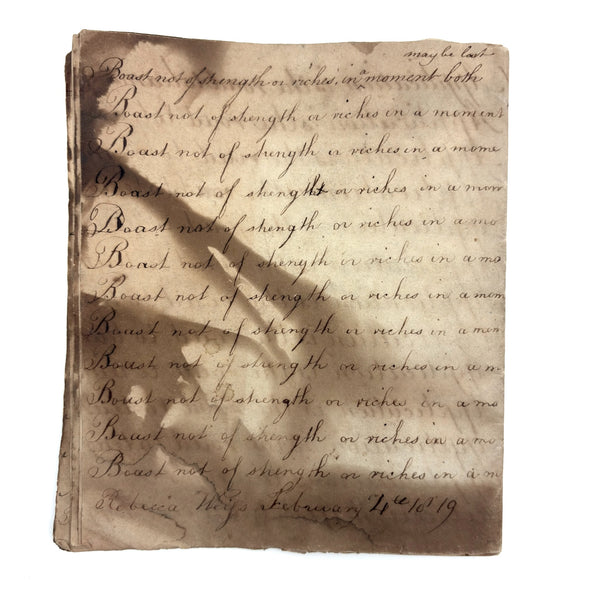 may be lost
Boast not of strength or riches, in a moment both
Boast not of strength or riches in a moment
Boast not of strength or riches in a mome
Boast not of strength or riches in a mom
Boast not of strength or riches in a mo
Boast not of strength or riches in a mo
Boast not of strength or riches in a mom
Boast not of strength or riches in a mom
Boast not of strength or riches in a m
Boast not of strength or riches in a mo
Boast not of strength or riches in a mo
Boast not of strength or riches in a m
Rebecca February 4th 1819